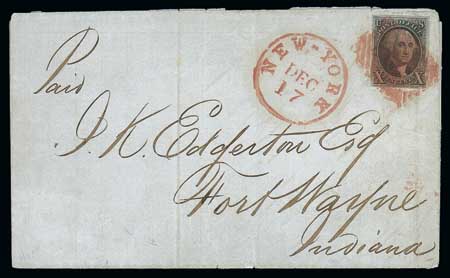 POST OFFICE
X X
NEW-YORK
DEC
17
Paid
J. K. Edgerton Esq
Fort Wayne
Indiana